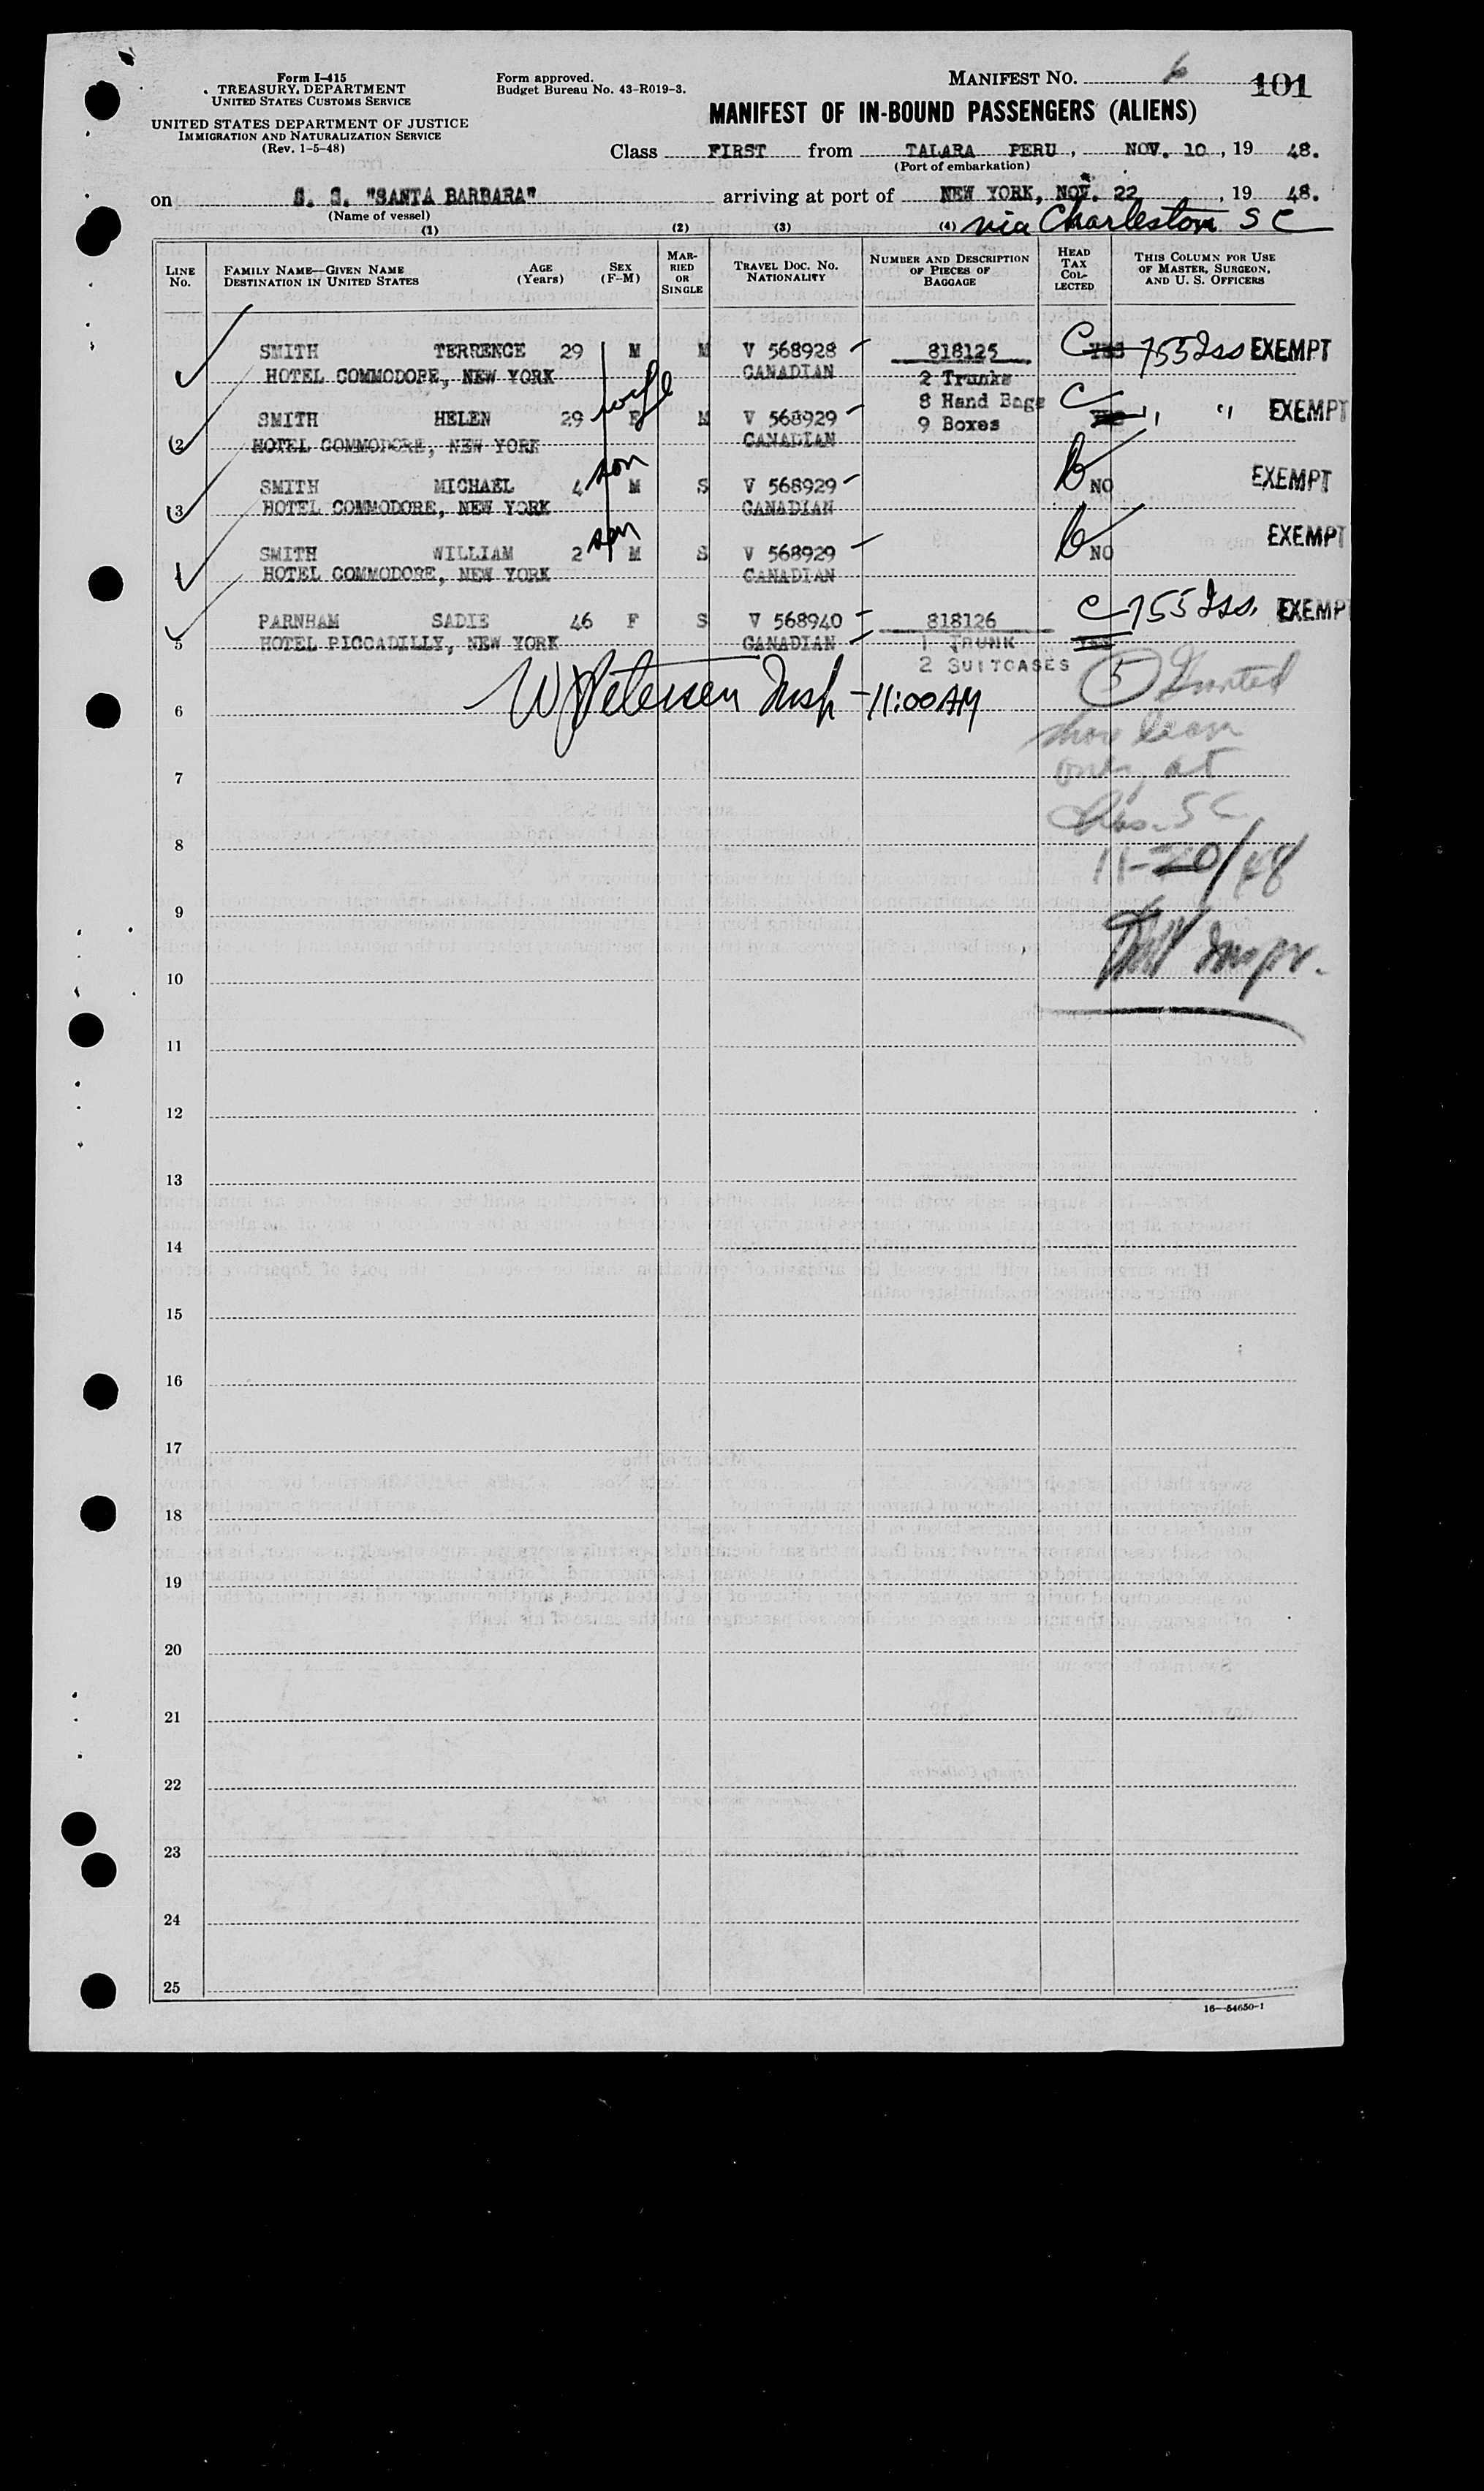 Form I-415
TREASURY DEPARTMENT
UNITED STATES CUSTOMS SERVICE
UNITED STATES DEPARTMENT OF JUSTICE
IMMIGRATION AND NATURALIZATION SERVICE
(Rev. 1-5-48)
Form approved.
Budget Bureau No. 43-R019-3.
MANIFEST NO. 6 101
MANIFEST OF IN-BOUND PASSENGERS (ALIENS)
Class FIRST from TALARA PERU, NOV. 10, 19 48.
(Port of embarkation)
on S. S. "SANTA BARBARA" arriving at port of NEW YORK, NOV. 22, 19 48.
(Name of vessel)
via Charleston S C
(1) (2) (3) (4)
LINE No. FAMILY NAME—GIVEN NAME DESTINATION IN UNITED STATES AGE (Years) SEX (F-M) MARRIED OR SINGLE TRAVEL DOC. NO. NATIONALITY NUMBER AND DESCRIPTION OF PIECES OF BAGGAGE HEAD TAX COLLECTED THIS COLUMN FOR USE OF MASTER, SURGEON, AND U. S. OFFICERS
SMITH TERRENCE 29 M M V 568928 818125 C YES 755 Iss EXEMPT
HOTEL COMMODORE, NEW YORK CANADIAN 2 Trunks
8 Hand Bags
SMITH HELEN 29 wife F M V 568929 9 Boxes C YES " " EXEMPT
2 HOTEL COMMODORE, NEW YORK CANADIAN
SMITH MICHAEL 4 son M S V 568929 NO EXEMPT
3 HOTEL COMMODORE, NEW YORK CANADIAN
SMITH WILLIAM 2 son M S V 568929 NO EXEMPT
HOTEL COMMODORE, NEW YORK CANADIAN
PARNHAM SADIE 46 F S V 568940 818126 C 755 Iss. EXEMP
5 HOTEL PICCADILLY, NEW YORK CANADIAN 1 TRUNK YES
2 SUITCASES
W Petersen Insp - 11:00 AM
5 Granted
shore leave
only at
Chas. S C
11-20/48
Inspr.
6
7
8
9
10
11
12
13
14
15
16
17
18
19
20
21
22
23
24
25
16—54650-1